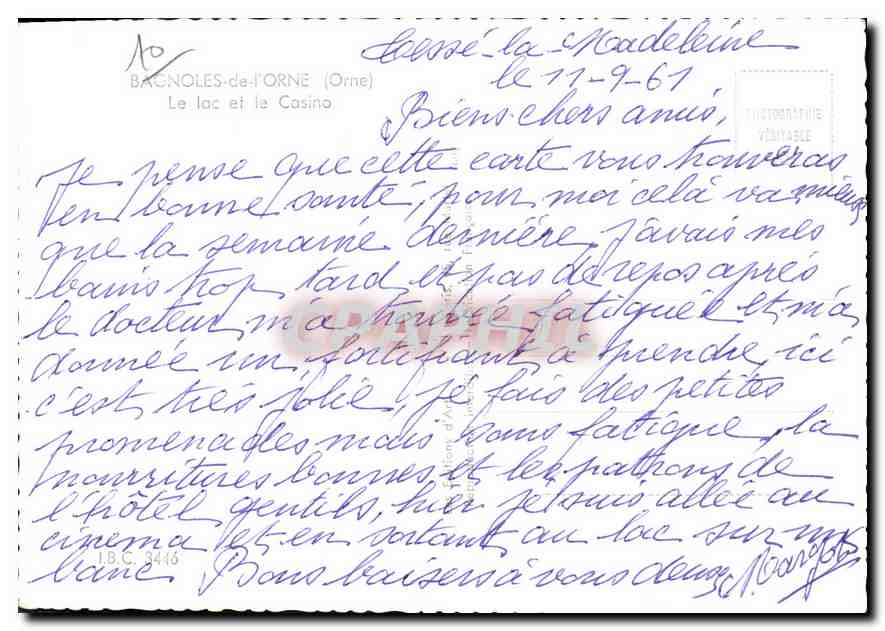 10
BAGNOLES-de-l'ORNE (Orne)
Le lac et le Casino
Tessé-la-Madeleine
le 11-9-61
PHOTOGRAPHIE
VÉRITABLE
Biens chers amis,
Je pense que cette carte vous trouveras
en bonne santé, pour moi celà va mieux
que la semaine dernière, j'avais mes
bains trop tard et pas de repos aprés
le docteur m'a trouvée fatiguée et m'a
donnée un fortifiant à prendre, ici
c'est trés jolie, je fais des petites
promenades mais sans fatigue, la
nourritures bonnes et les patrons de
l'hôtel gentils, hier je suis allée au
cinema et en sortant au lac sur un
banc Bons baisers à vous deux
Margot
I.B.C. 3446
CPAPHIL